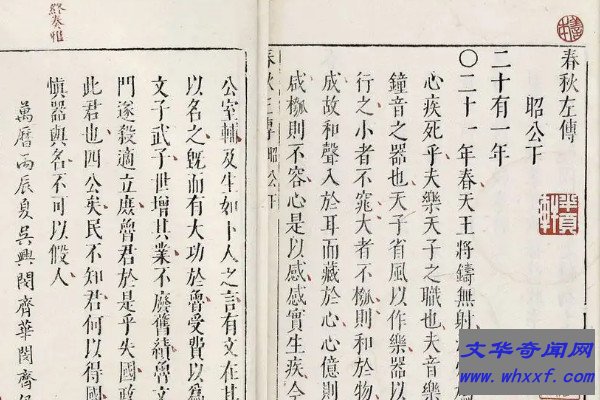 春秋左傳
昭公下
二十有一年
〇二十一年春天王將鑄無射
心疾死乎夫樂天子之職也夫音樂
鐘音之器也天子省風以作樂器以
行之小者不窕大者不摦則和於物
成故和聲入於耳而藏於心心億則
咸摦則不容心是以感感實生疾今
春秋左傳 昭公下
公室輔及生如卜人之言有文在其
以名之既而有大功於魯受費以為
文子武子世增其業不廢舊績魯文
門遂殺適立庶魯君於是乎失國政
此君也四公矣民不知君何以得國
慎器與名不可以假人
萬曆丙辰夏吳興閔齊華閔齊伋
終奏雅
文华奇闻网
www.whxxf.com